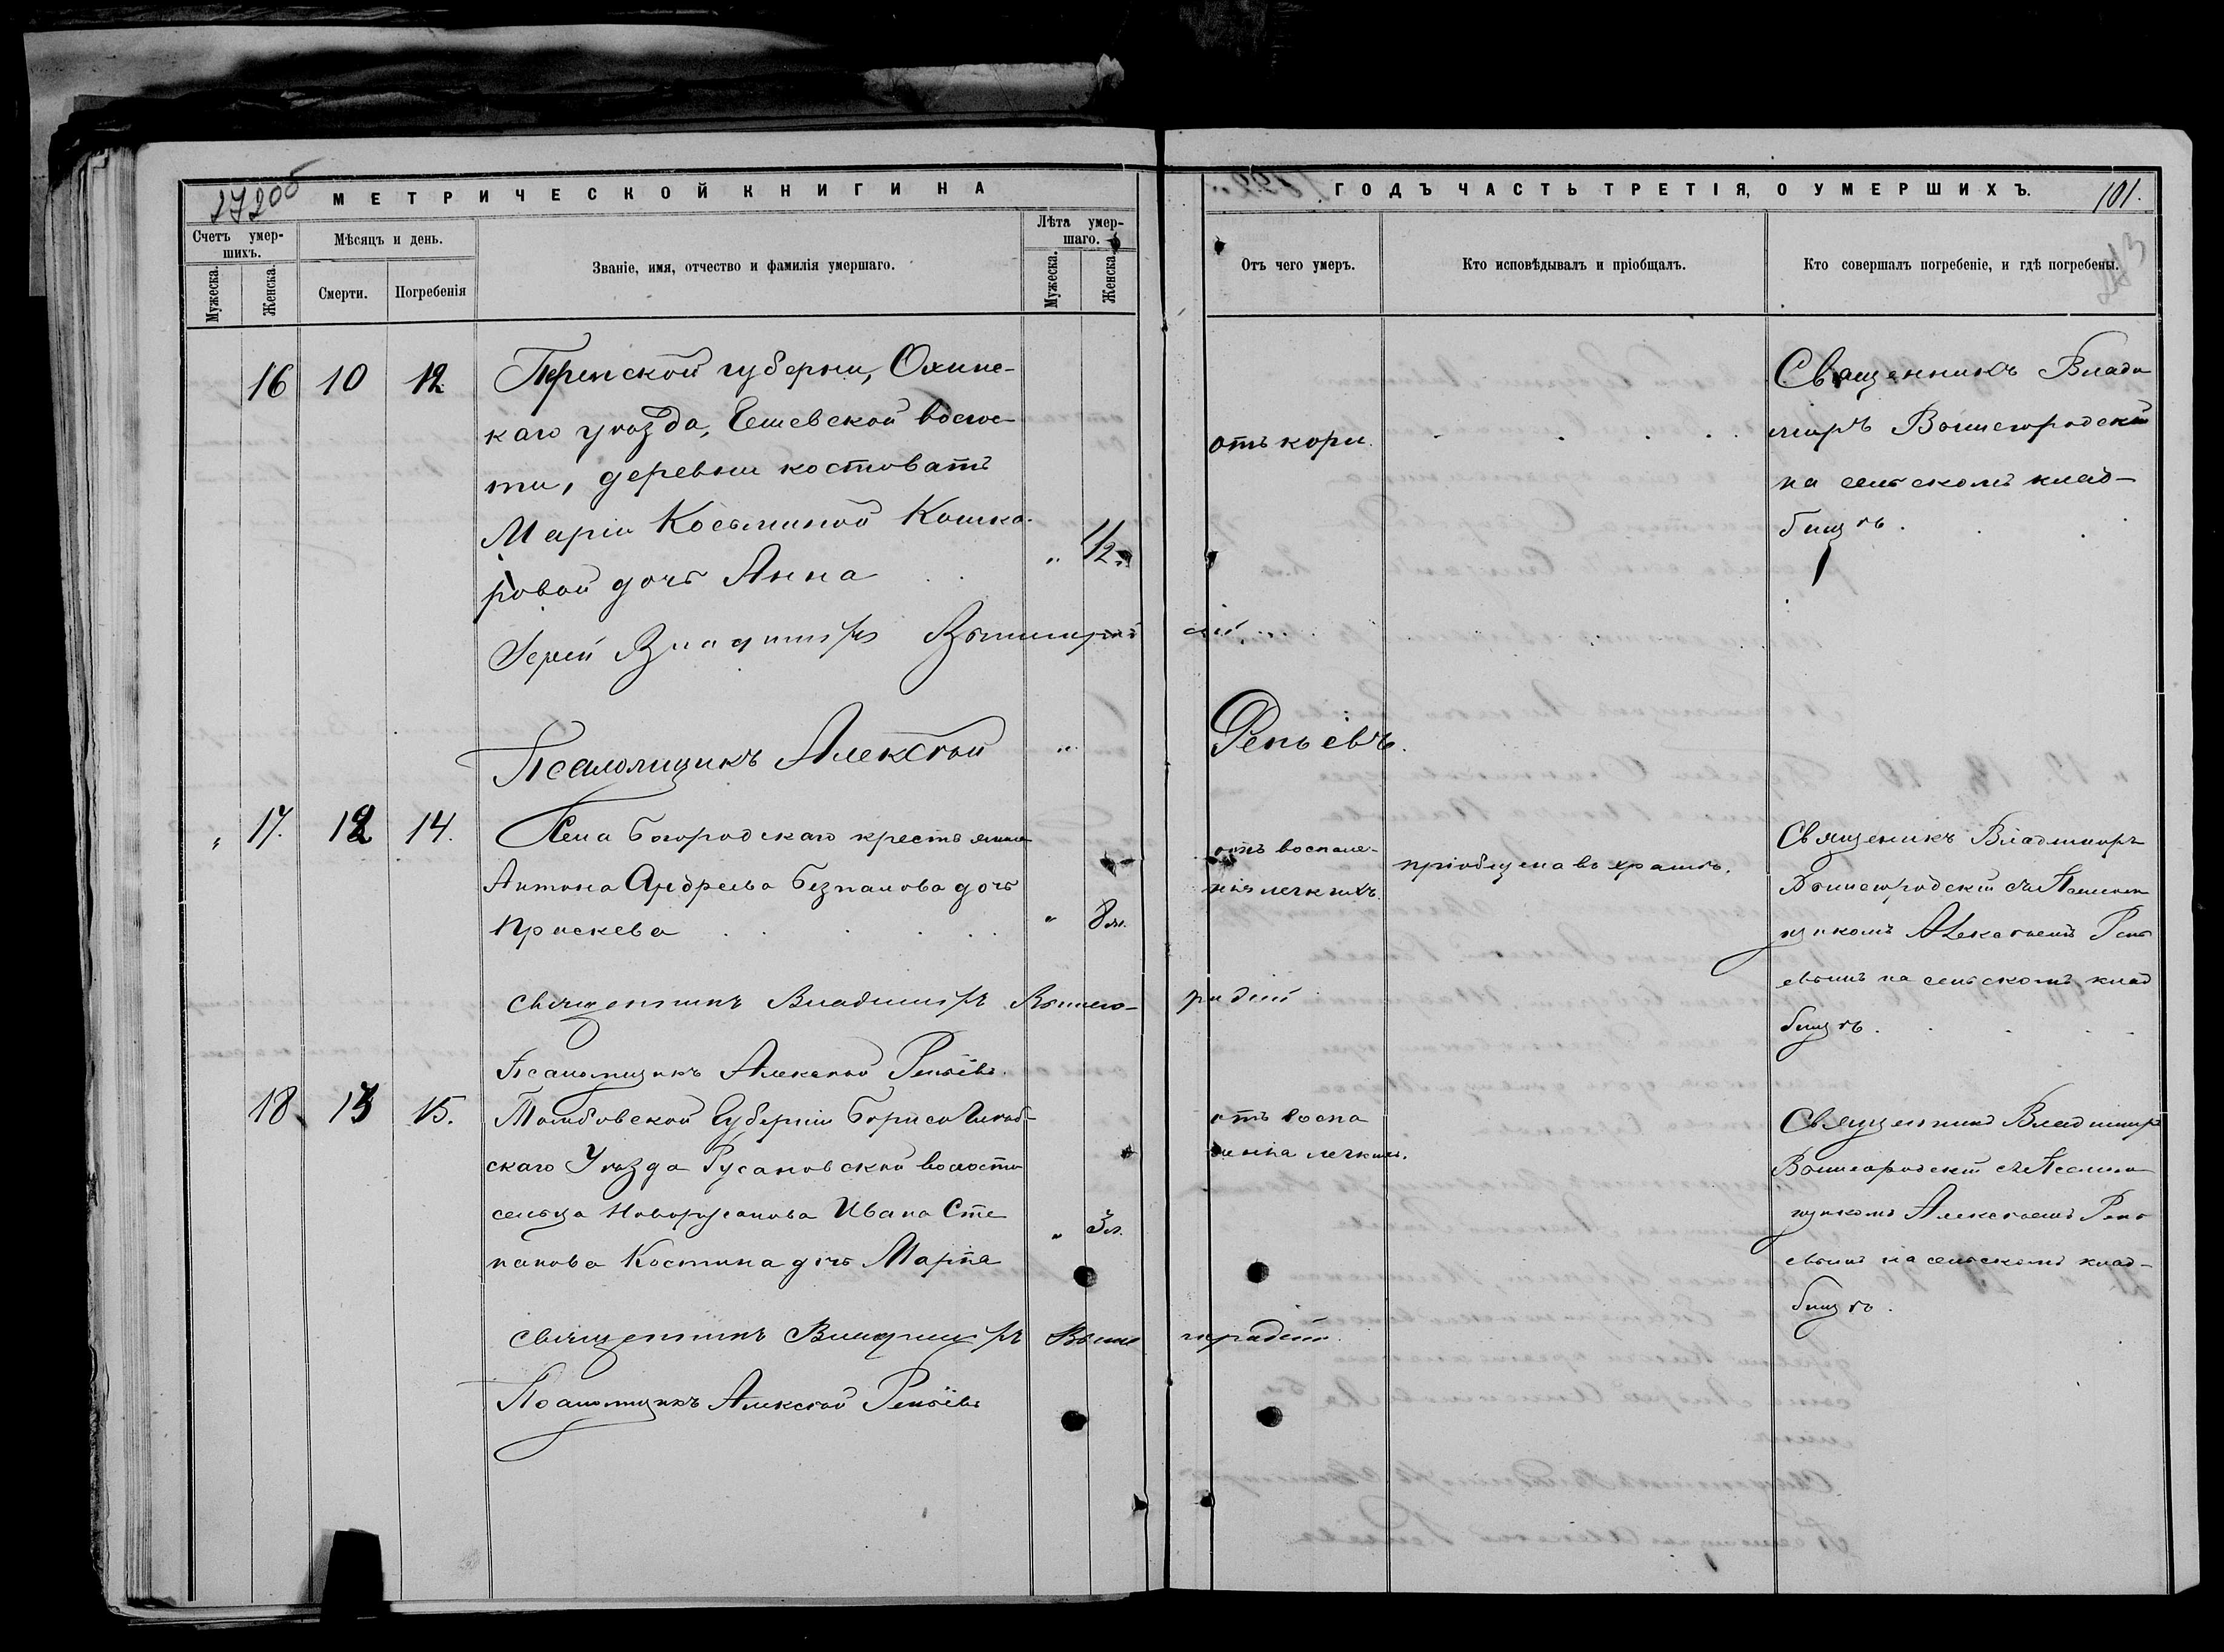 272об
МЕТРИЧЕСКОЙ КНИГИ НА
ГОДЪ ЧАСТЬ ТРЕТІЯ, О УМЕРШИХЪ.
101.
Счетъ умер-
шихъ.
Мѣсяцъ и день.
Званіе, имя, отчество и фамилія умершаго.
Лѣта умер-
шаго.
Отъ чего умеръ.
Кто исповѣдывалъ и пріобщалъ.
Кто совершалъ погребеніе, и гдѣ погребены.
Мужеска.
Женска.
Смерти.
Погребенія
Мужеска.
Женска.
16 10 12
Пермской губерніи, Охан-
каго уѣзда, волос-
ти, деревни
Маріи Косьминой Кошка-
ровой дочь Анна
1/2
отъ кори.
Священникъ Влади
миръ Вышегородскій
на сельскомъ клад-
бищѣ.
Іерей Владиміръ
Псаломщикъ Алексѣй
Репьевъ.
17. 12 14.
Села Богородскаго крестьянина
Антона Андреева дочь
8 л.
отъ воспале-
нія легкихъ.
пріобщена въ храмѣ.
Священикъ Владиміръ
Вышегородскій съ Псалом
щикомъ Алексѣемъ Репь
евымъ на сельскомъ клад
бищѣ.
Священникъ Владиміръ Вышего-
родскій
Псаломщикъ Алексѣй Репьёвъ.
18 13 15.
Тамбовской Губерніи Борисоглѣб-
скаго Уѣзда Русановской волости
сельца Новорусанова Ивана Сте
панова Костина дочь Марѳа
3 л.
отъ воспа
ленія легкихъ.
Священникъ Владиміръ
Вышегородскій съ Псалом
щикомъ Алексѣемъ Репь
евымъ на сельскомъ клад-
бищѣ.
Священникъ Владиміръ Выше
городскій
Псаломщикъ Алексѣй Репьёвъ